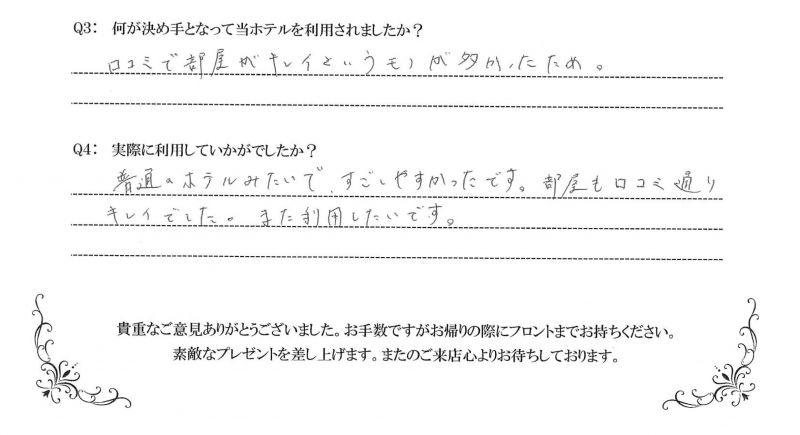 Q3： 何が決め手となって当ホテルを利用されましたか？
口コミで部屋がキレイというモノが多かったため。
Q4： 実際に利用していかがでしたか？
普通のホテルみたいで、すごしやすかったです。部屋も口コミ通り
キレイでした。また利用したいです。
貴重なご意見ありがとうございました。お手数ですがお帰りの際にフロントまでお持ちください。
素敵なプレゼントを差し上げます。またのご来店心よりお待ちしております。